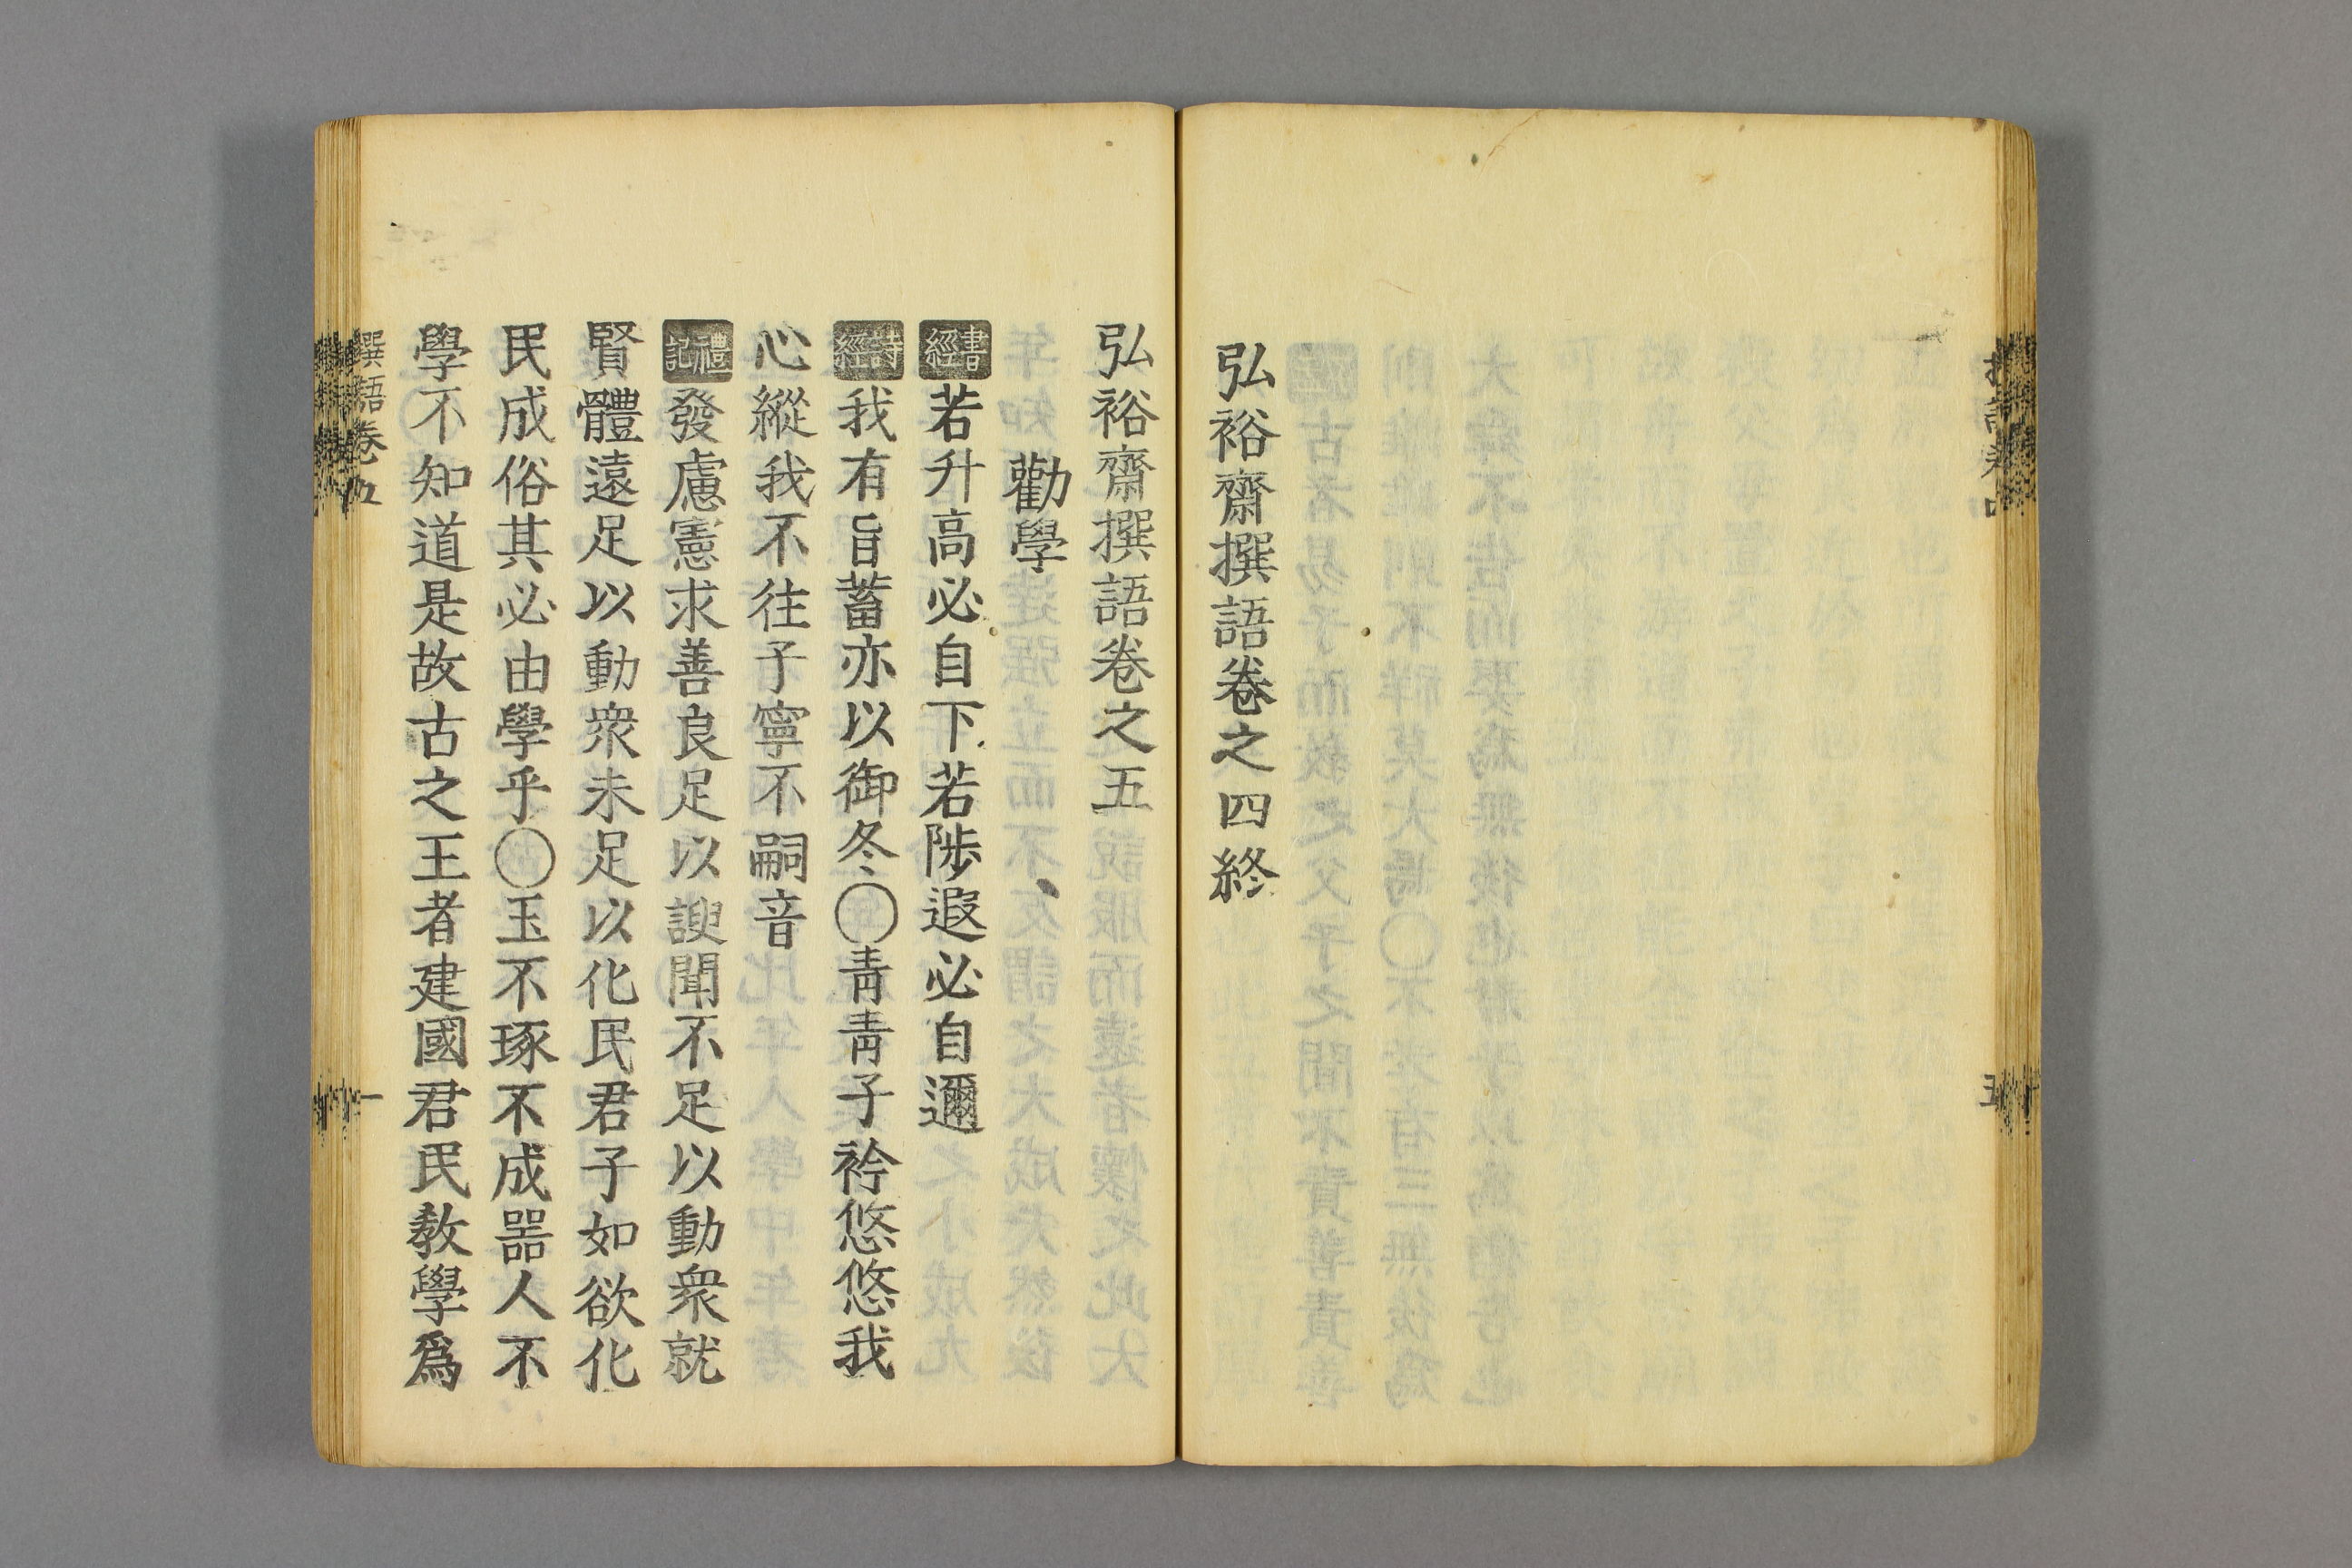 弘裕齋撰語卷之四終
弘裕齋撰語卷之五
勸學
書經若升高必自下若陟遐必自邇
詩經我有旨蓄亦以御冬〇靑靑子衿悠悠我
心縱我不往子寧不嗣音
禮記發慮憲求善良足以謏聞不足以動衆就
賢體遠足以動衆未足以化民君子如欲化
民成俗其必由學乎〇玉不琢不成噐人不
學不知道是故古之王者建國君民敎學爲
撰語卷五
一